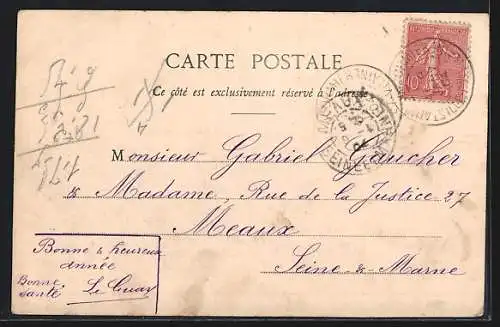 CARTE POSTALE
Ce côté est exclusivement réservé à l'adresse
Monsieur Gabriel Gaucher
& Madame, Rue de la Justice 27
Meaux
Seine-&-Marne
Bonne & heureuse
année
Bonne
santé
10